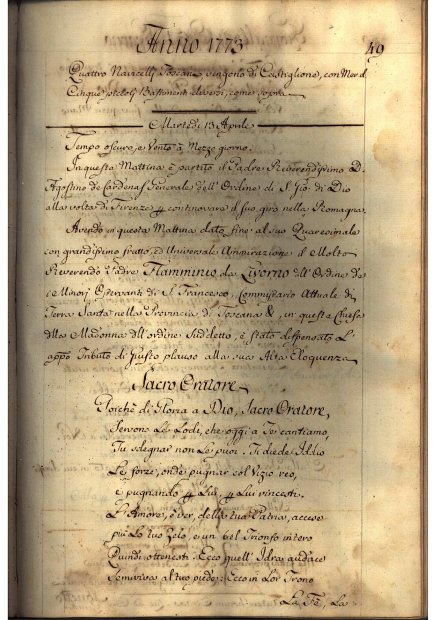 Anno 1773
49
Quattro Navicelli Toscani vengono di Castiglione, con Mer. d.
Cinque piccoli Bastimenti diversi, come sopra
Martedì 13 Aprile
Tempo oscuro, e Vento à Mezzo giorno.
In questa Mattina è partito il Padre Reverendissimo D.
Agostino de Cardenas Generale dell' Ordine di S. Gio: di Dio
alla volta di Firenze p continovare il suo giro nella Romagna.
Avendo in questa Mattina dato fine al suo Quaresimale
con grandissimo frutto, ed Universale Ammirazione il Molto
Reverendo Padre Flamminio da Livorno dell' Ordine de
Minori Osservanti di S. Francesco, Commissario Attuale di
Terra Santa nella Provincia di Toscana &, in questa Chiesa
della Madonna dell' ordine Suddetto, è stato dispensato L'
appo Tributo di Giusto plauso alla sua Alta Eloquenza
Sacro Oratore
Poichè di Gloria a Dio, Sacro Oratore,
Servono Le Lodi, che oggi a Te cantiamo,
Tu sdegnar non Le puoi. Ti diede Iddio
Le forze, onde pugnar col Vizio reo,
e pugnando p Lui, p Lui vincesti.
L'Amore, è ver, della tua Patria, accese
più Lo tuo Zelo, e un bel Trionfo intero
Quindi ottenesti. Ecco quell' Idra audace
Semiviva al tuo piede: Ecco in Lor Trono
La Fè, La